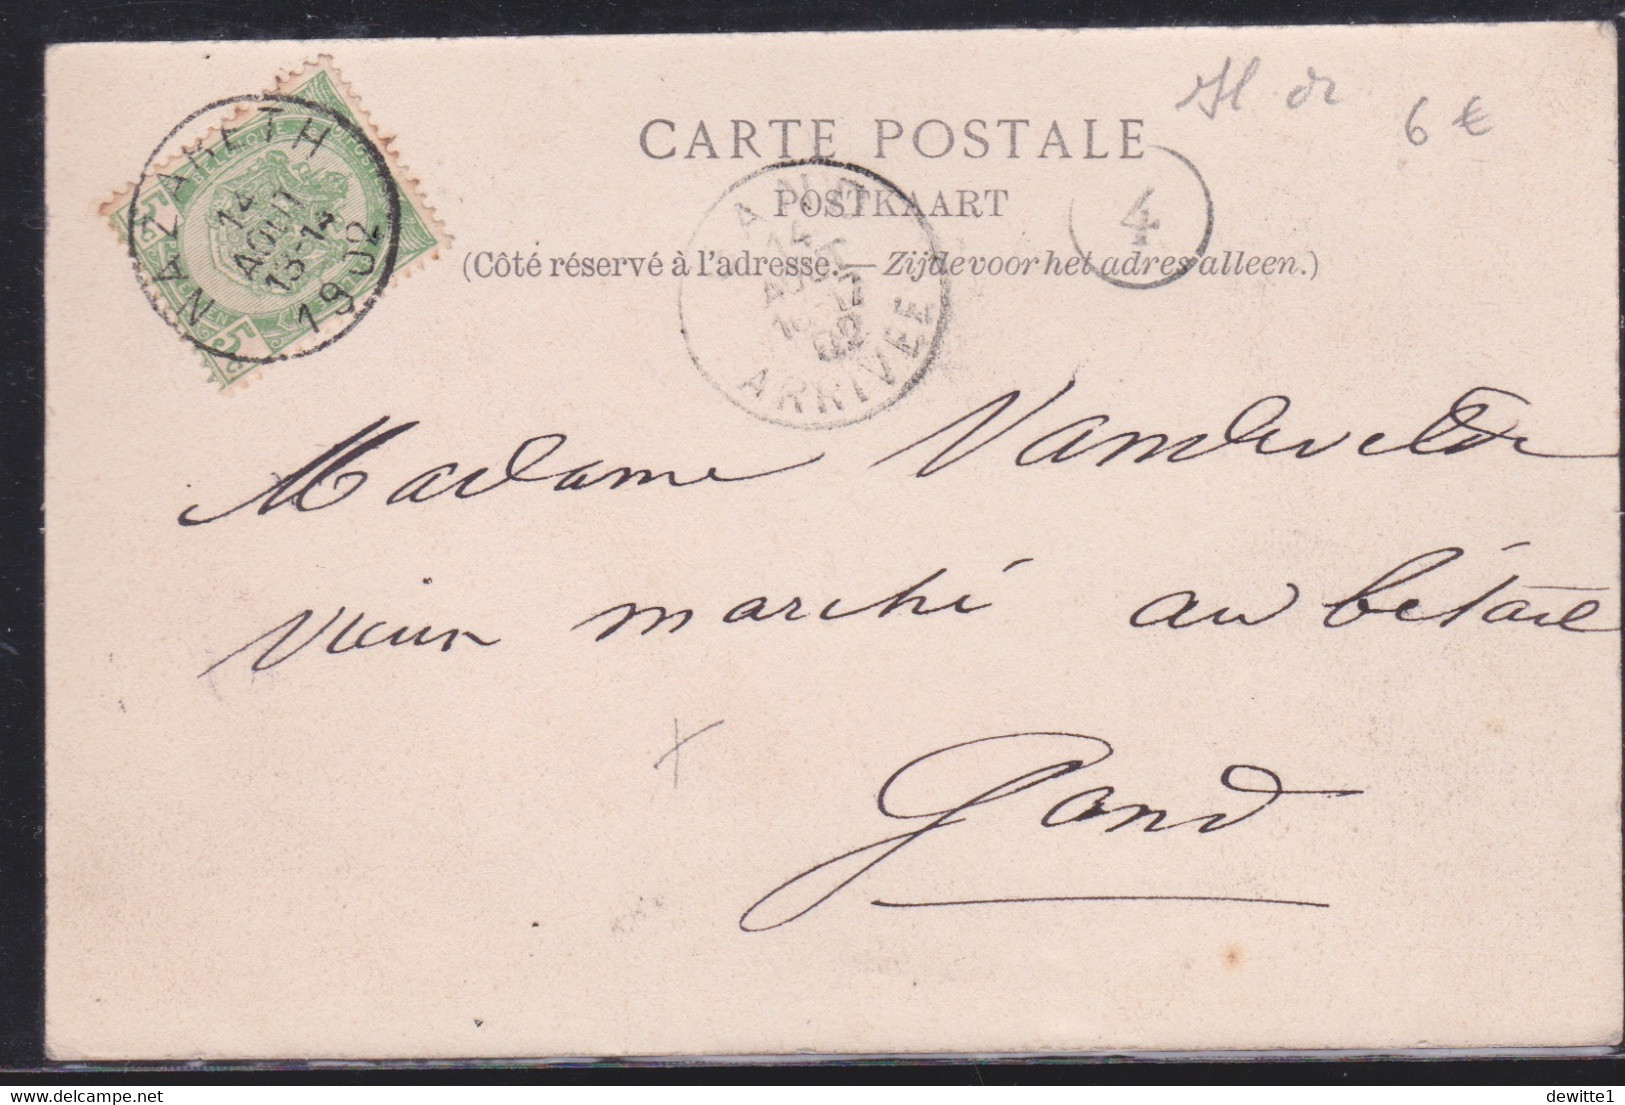 CARTE POSTALE
POSTKAART
(Côté réservé à l'adresse. — Zijde voor het adres alleen.)
6 €
4
NAZARETH
14
AOUT
13-14
1902
BELGIQUE
5
5
GAND
14
AOUT
17
02
ARRIVEE
Madame Vandevelde
Vieux marché au bétail
Gand
www.delcampe.net
dewitte1